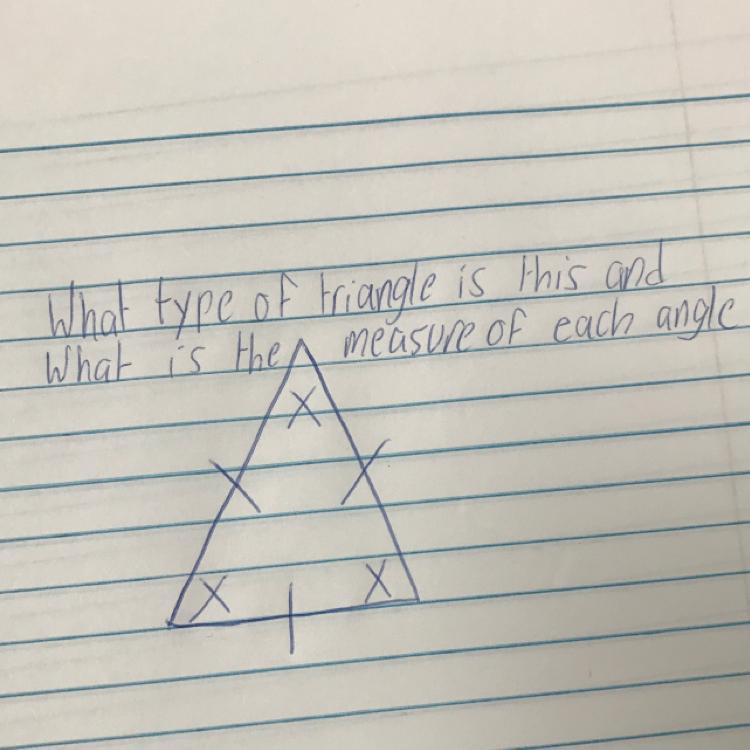 What type of triangle is this and
What is the measure of each angle
X
X X